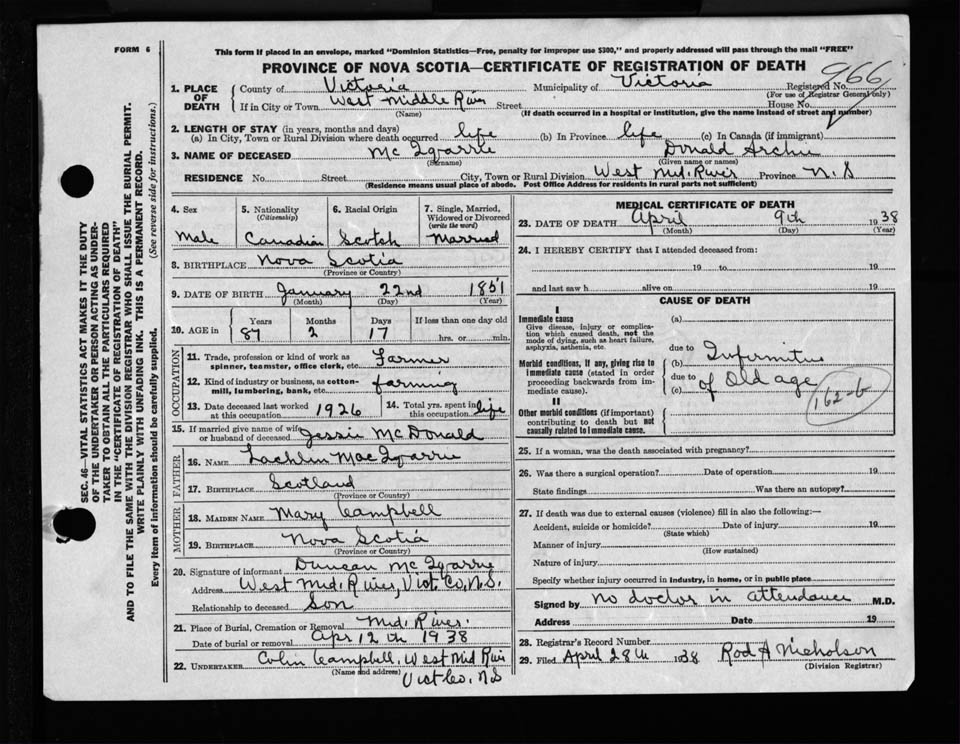 FORM 6
This form if placed in an envelope, marked "Dominion Statistics—Free, penalty for improper use $300," and properly addressed will pass through the mail "FREE"
PROVINCE OF NOVA SCOTIA—CERTIFICATE OF REGISTRATION OF DEATH
966
SEC. 46—VITAL STATISTICS ACT MAKES IT THE DUTY
OF THE UNDERTAKER OR PERSON ACTING AS UNDER-
TAKER TO OBTAIN ALL THE PARTICULARS REQUIRED
IN THE "CERTIFICATE OF REGISTRATION OF DEATH"
AND TO FILE THE SAME WITH THE DIVISION REGISTRAR WHO SHALL ISSUE THE BURIAL PERMIT.
WRITE PLAINLY WITH UNFADING INK. THIS IS A PERMANENT RECORD.
Every item of information should be carefully supplied. (See reverse side for instructions.)
1. PLACE OF DEATH
County of Victoria Municipality of Victoria Registered No.
(For use of Registrar General only)
If in City or Town West Middle River Street House No.
(Name) (If death occurred in a hospital or institution, give the name instead of street and number)
2. LENGTH OF STAY (in years, months and days)
(a) In City, Town or Rural Division where death occurred life (b) In Province life (c) In Canada (if immigrant)
3. NAME OF DECEASED Mc Isaac Donald Archie
(Surname) (Given name or names)
RESIDENCE No. Street City, Town or Rural Division West Mid. River Province N. S
(Residence means usual place of abode. Post Office Address for residents in rural parts not sufficient)
4. Sex
Male
5. Nationality
(Citizenship)
Canadian
6. Racial Origin
Scotch
7. Single, Married,
Widowed or Divorced
(write the word)
Married
8. BIRTHPLACE Nova Scotia
(Province or Country)
9. DATE OF BIRTH January 22nd 1851
(Month) (Day) (Year)
10. AGE in
Years Months Days If less than one day old
87 2 17 hrs. or min.
OCCUPATION
11. Trade, profession or kind of work as
spinner, teamster, office clerk, etc. Farmer
12. Kind of industry or business, as cotton-
mill, lumbering, bank, etc. farming
13. Date deceased last worked
at this occupation 1926
14. Total yrs. spent in
this occupation life
15. If married give name of wife
or husband of deceased Jessie McDonald
FATHER
16. NAME Lachlin
17. BIRTHPLACE Scotland
(Province or Country)
MOTHER
18. MAIDEN NAME Mary Campbell
19. BIRTHPLACE Nova Scotia
(Province or Country)
20. Signature of informant Duncan
Address West Mid. River, Vict. Co, N. S.
Relationship to deceased Son
21. Place of Burial, Cremation or Removal Mid. River.
Date of burial or removal Apr 12th 1938
22. UNDERTAKER Colin Campbell, West Mid River
(Name and address) Vict Co, N S
MEDICAL CERTIFICATE OF DEATH
23. DATE OF DEATH April 9th 1938
(Month) (Day) (Year)
24. I HEREBY CERTIFY that I attended deceased from:
19 to 19
and last saw h alive on 19
CAUSE OF DEATH
I
Immediate cause (a)
Give disease, injury or complica-
tion which caused death, not the
mode of dying, such as heart failure,
asphyxia, asthenia, etc.
due to
Morbid conditions, if any, giving rise to
immediate cause (stated in order
proceeding backwards from im-
mediate cause).
(b) Infirmities
due to
(c) of Old age
162-b
II
Other morbid conditions (if important)
contributing to death but not
causally related to immediate cause.
25. If a woman, was the death associated with pregnancy?
26. Was there a surgical operation? Date of operation 19
State findings Was there an autopsy?
27. If death was due to external causes (violence) fill in also the following:—
Accident, suicide or homicide? Date of injury 19
(State which)
Manner of injury
(How sustained)
Nature of injury
Specify whether injury occurred in industry, in home, or in public place
Signed by no doctor in attendance M.D.
Address Date 19
28. Registrar's Record Number
29. Filed April 28th 1938 Rod A Nicholson
(Division Registrar)